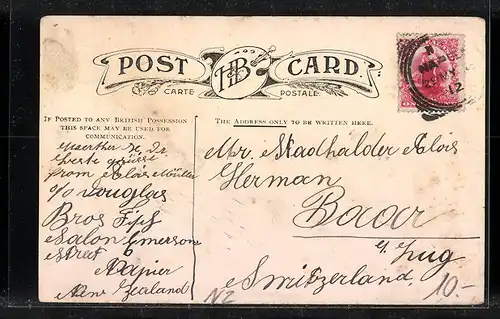 POST HB CARD.
CARTE POSTALE
IF POSTED TO ANY BRITISH POSSESSION
THIS SPACE MAY BE USED FOR
COMMUNICATION.
THE ADDRESS ONLY TO BE WRITTEN HERE.
from Alois Müller
c/o Douglas
Bros Fish
Salon Emerson
Street
Napier
New Zealand
Mr. Stadhalder Alois
Herman
Baar
Zug
Switzerland.
NZ
10.-
12